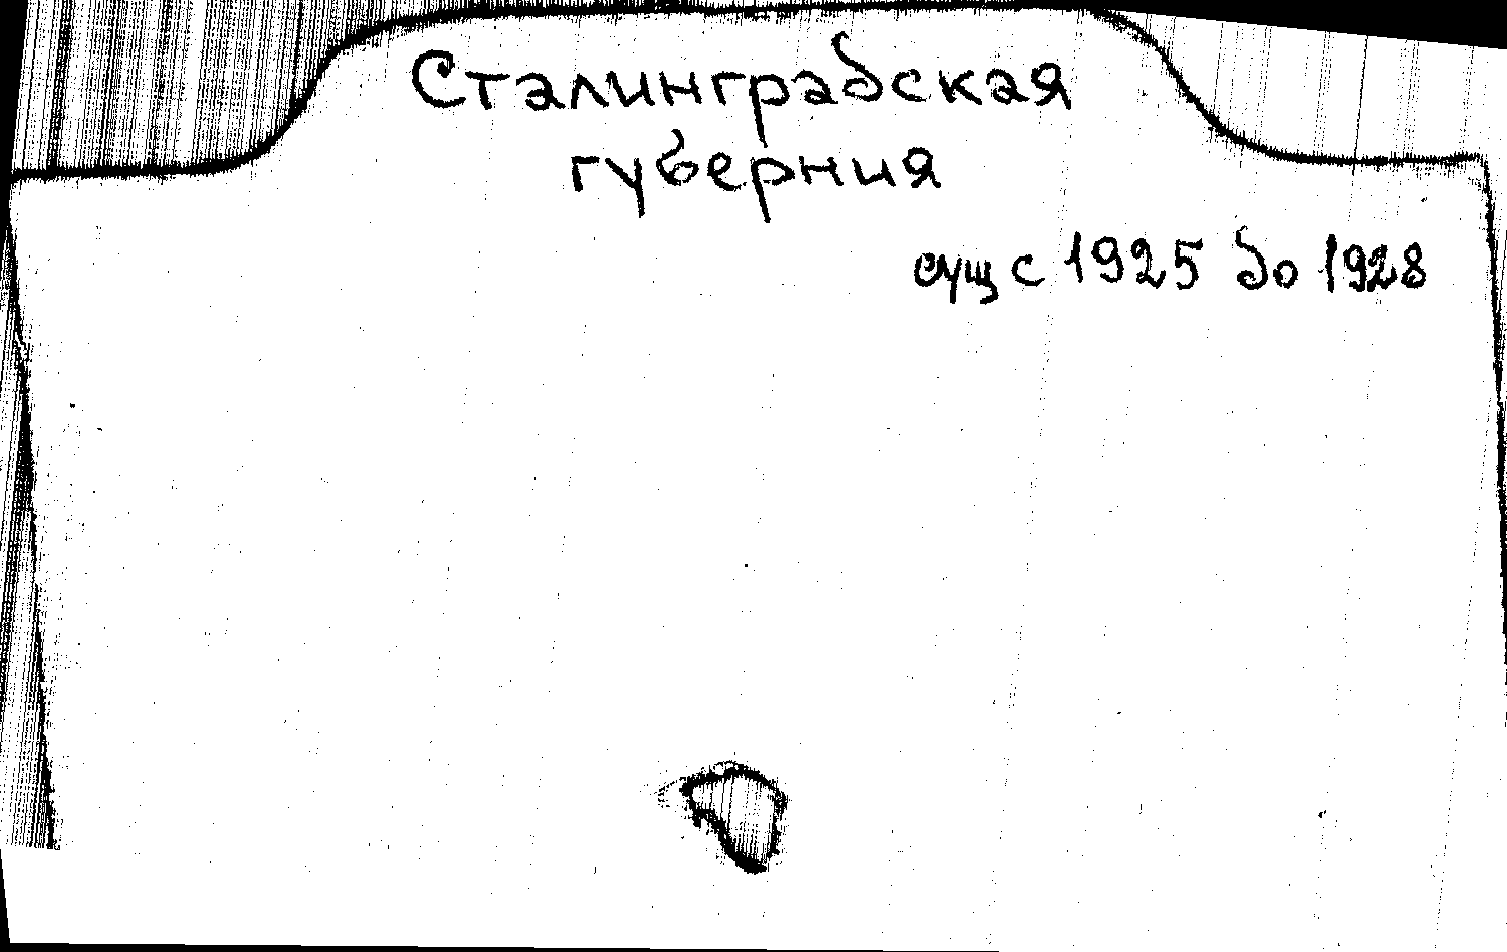 Сталинградская
губерния
сущ с 1925 до 1928